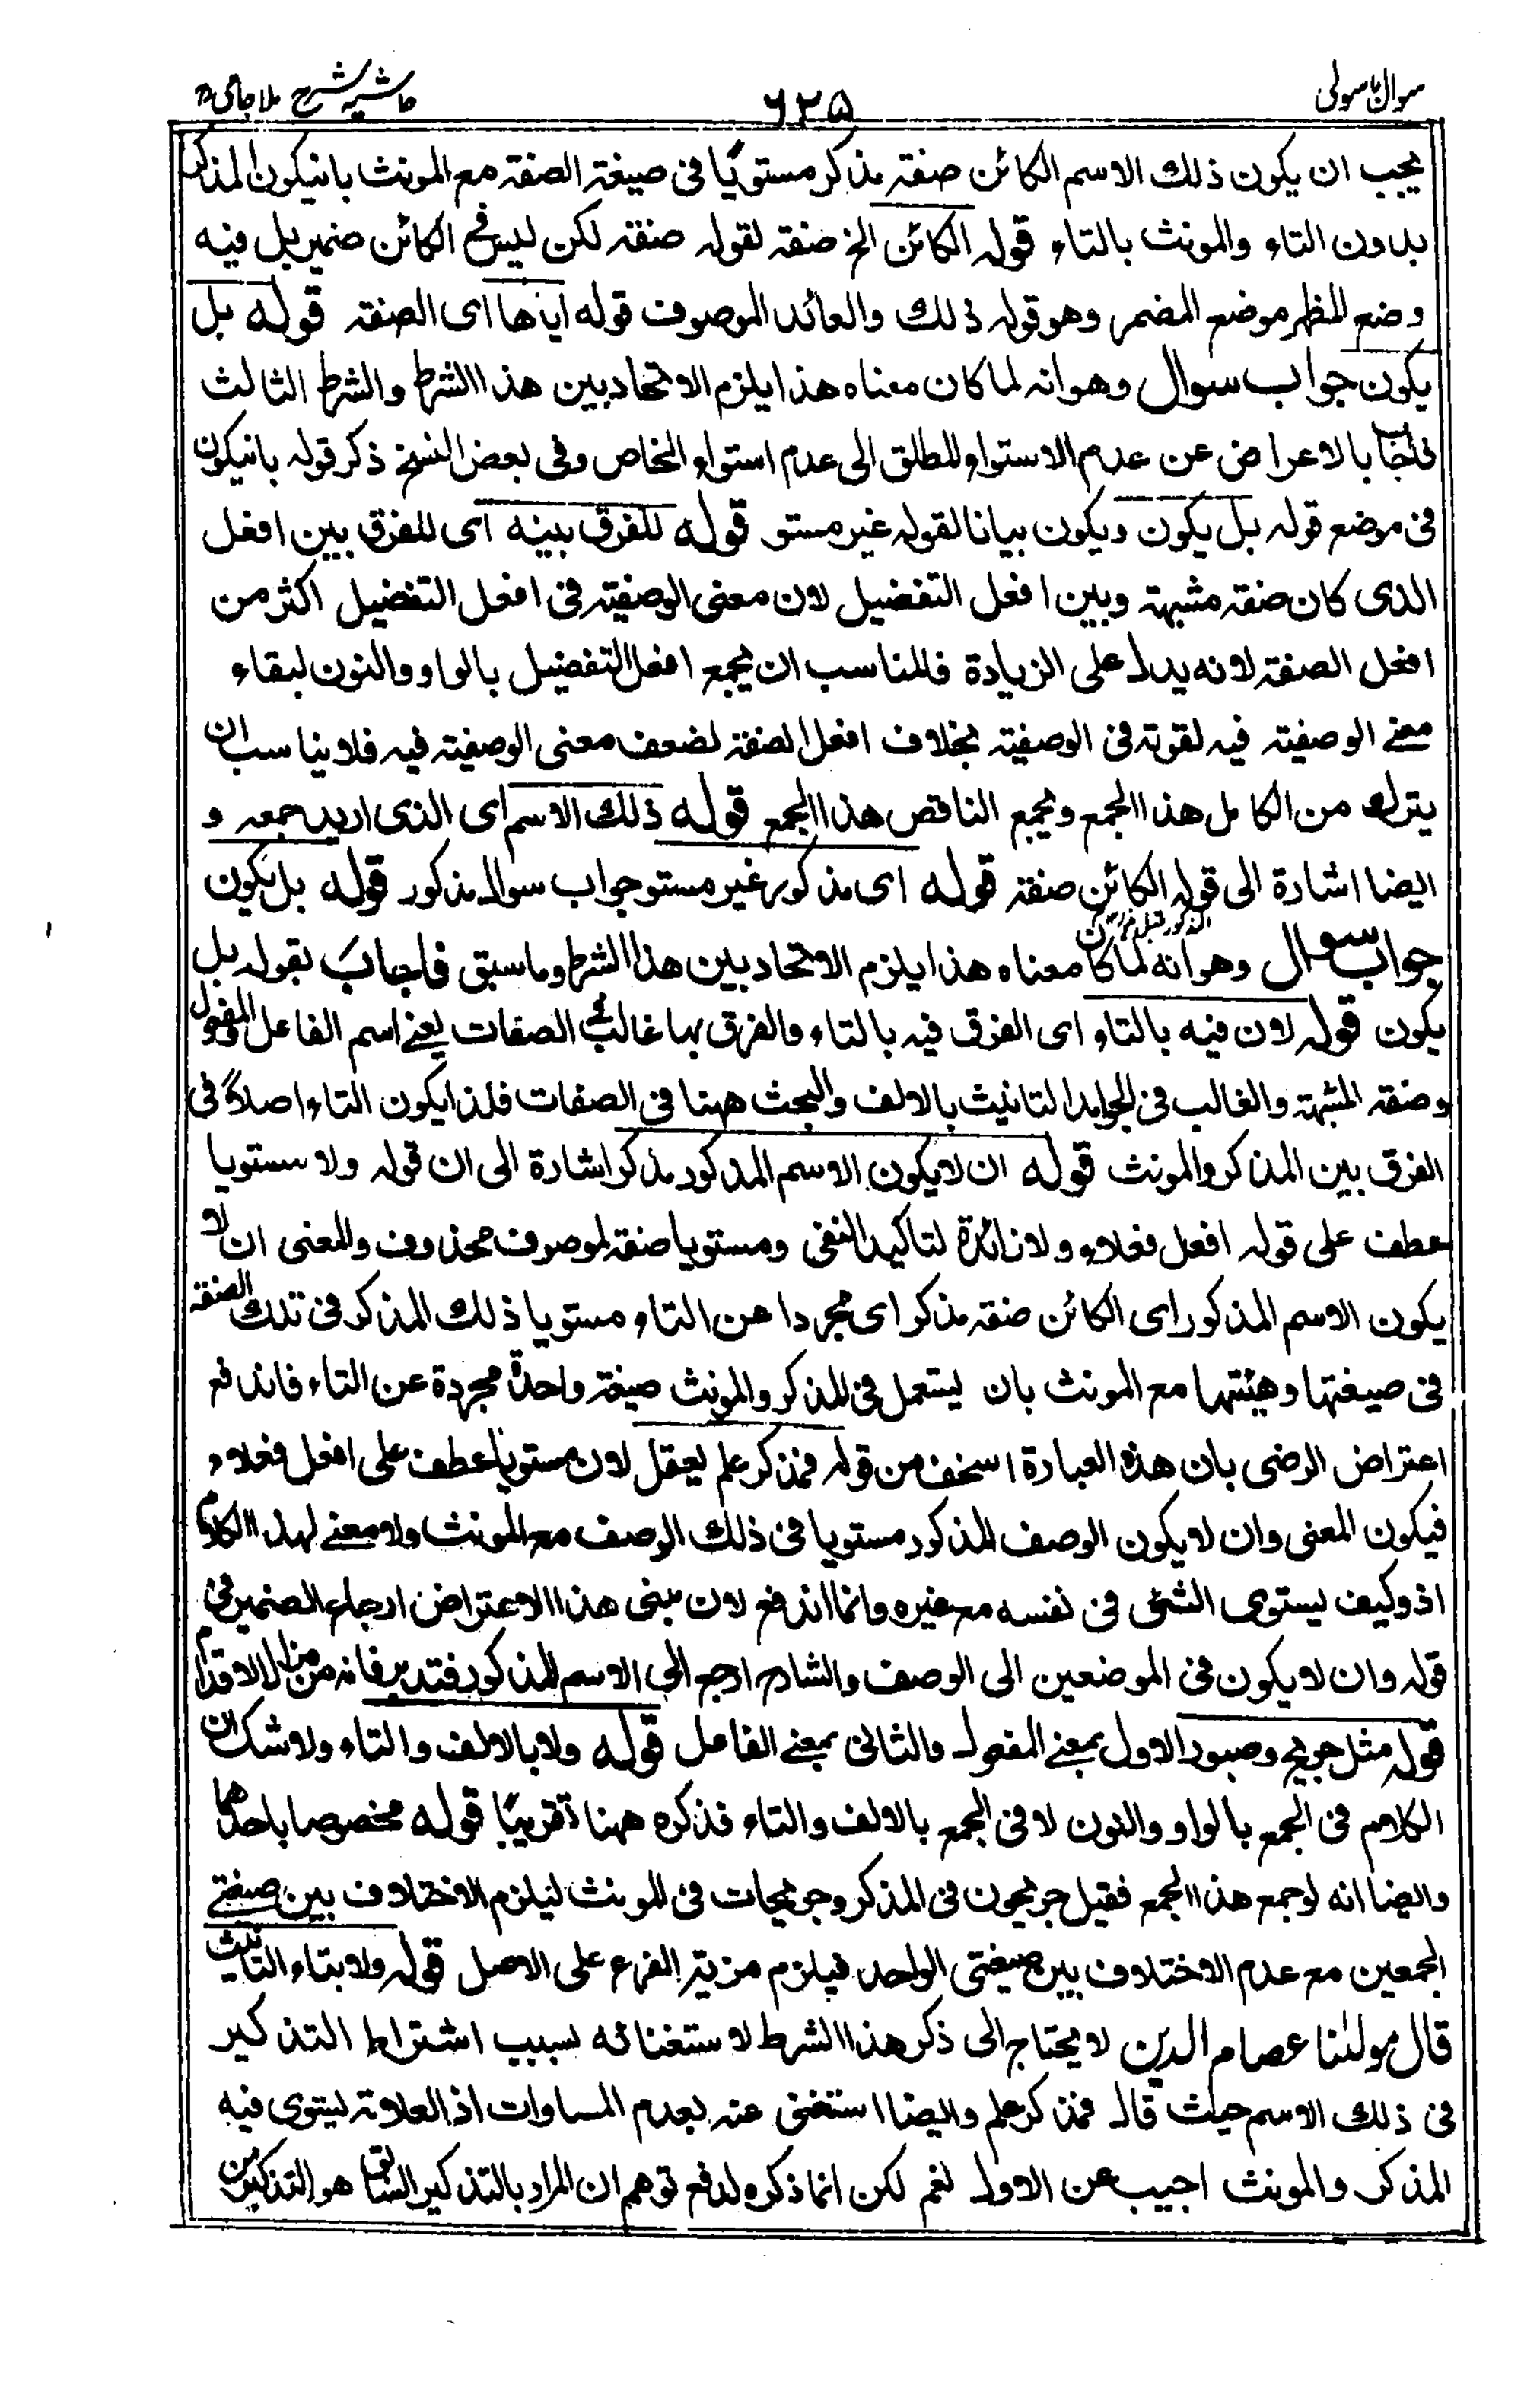 سوال باسولی ٦٢٥ حاشیہ شرح ملا جامی
یجب ان یکون ذلك الاسم الکائن صفة مذکر مستویا فی صیغة الصفة مع المونث بانیکون المذکر
بدون التاء والمونث بالتاء قوله الکائن الخ صفة لقوله صفة لکن لیس فی الکائن ضمیر بل فیه
وضع المظهر موضع المضمر وهو قوله ذلك والعائد الموصوف قوله ایاها ای الصفة قوله بل
یکون جواب سوال وهو انه لما کان معناه هذا یلزم الاتحاد بین هذا الشرط والشرط الثالث
فاجاب بالاعراض عن عدم الاستواء المطلق الی عدم استواء الخاص وفی بعض النسخ ذکر قوله بانیکون
فی موضع قوله بل یکون ویکون بیانا لقوله غیر مستو قوله للفرق بینه ای للفرق بین افعل
الذی کان صفة مشبهة وبین افعل التفضیل لان معنی الوصفیة فی افعل التفضیل اکثر من
افعل الصفة لانه یدل علی الزیادة فالمناسب ان یجمع افعل التفضیل بالواو والنون لبقاء
معنے الوصفیة فیه لقوته فی الوصفیة بخلاف افعل الصفة لضعف معنی الوصفیة فیه فلا یناسب ان
یترك من الکامل هذا الجمع ویجمع الناقص هذا الجمع قوله ذلك الاسم ای الذی ارید جمعه و
ایضا اشارة الی قوله الکائن صفة قوله ای مذکور غیر مستو جواب سوال مذکور قوله بل یکون
جواب سوال وهو انه لما کان معناه هذا یلزم الاتحاد بین هذا الشرط وما سبق فاجاب بقوله بل
یکون قوله لان فیه بالتاء ای الفرق فیه بالتاء والفرق بها غالب فی الصفات یعنے اسم الفاعل والمفعول
وصفة المشبهة والغالب فی الجوامد التانیث بالالف والبحث ههنا فی الصفات فلذا یکون التاء اصلا فی
الفرق بین المذکر والمونث قوله ان لا یکون الاسم المذکور مذکر اشارة الی ان قوله ولا مستویا
عطف علی قوله افعل فعلاء ولا زائدة لتاکید النفی ومستویا صفة لموصوف محذوف والمعنی ان لا
یکون الاسم المذکور ای الکائن صفة مذکر ای مجردا عن التاء مستویا ذلك المذکر فی تلك الصفة
فی صیغتها وهیئتها مع المونث بان یستعمل فی المذکر والمونث صیغة واحدة مجردة عن التاء فاندفع
اعتراض الرضی بان هذه العبارة اسخف من قوله فمذکر علم یعقل لان مستویا عطف علی افعل فعلاء
فیکون المعنی وان لا یکون الوصف المذکور مستویا فی ذلك الوصف مع المونث ولا معنے لهذا الکلام
اذ وکیف یستوی الشئ فی نفسه مع غیره وانما اندفع لان مبنی هذا الاعتراض ارجاع الضمیر فی
قوله وان لا یکون فی الموضعین الی الوصف والشارح ارجع الی الاسم المذکور فتدبر فانه من مزال الاقدام
قوله مثل جریح وصبور الاول بمعنے المفعول والثانی بمعنے الفاعل قوله ولا بالالف والتاء ولا شك ان
الکلام فی الجمع بالواو والنون لا فی الجمع بالالف والتاء فذکره ههنا تقریبا قوله مخصوصا باحدهما
وایضا انه لو جمع هذا الجمع فقیل جریحون فی المذکر وجریحات فی المونث لیلزم الاختلاف بین صیغتے
الجمعین مع عدم الاختلاف بین صیغتی الواحد فیلزم مزیة الفرع علی الاصل قوله ولا بتاء التانیث
قال مولٰنا عصام الدین لا یحتاج الی ذکر هذا الشرط لاستغنائه بسبب اشتراط التذکیر
فی ذلك الاسم حیث قال فمذکر علم وایضا استغنی عنه بعدم المساوات اذ العلامة یستوی فیه
المذکر والمونث اجیب عن الاول نعم لکن انما ذکره لدفع توهم ان المراد بالتذکیر السابق هو التذکیر من